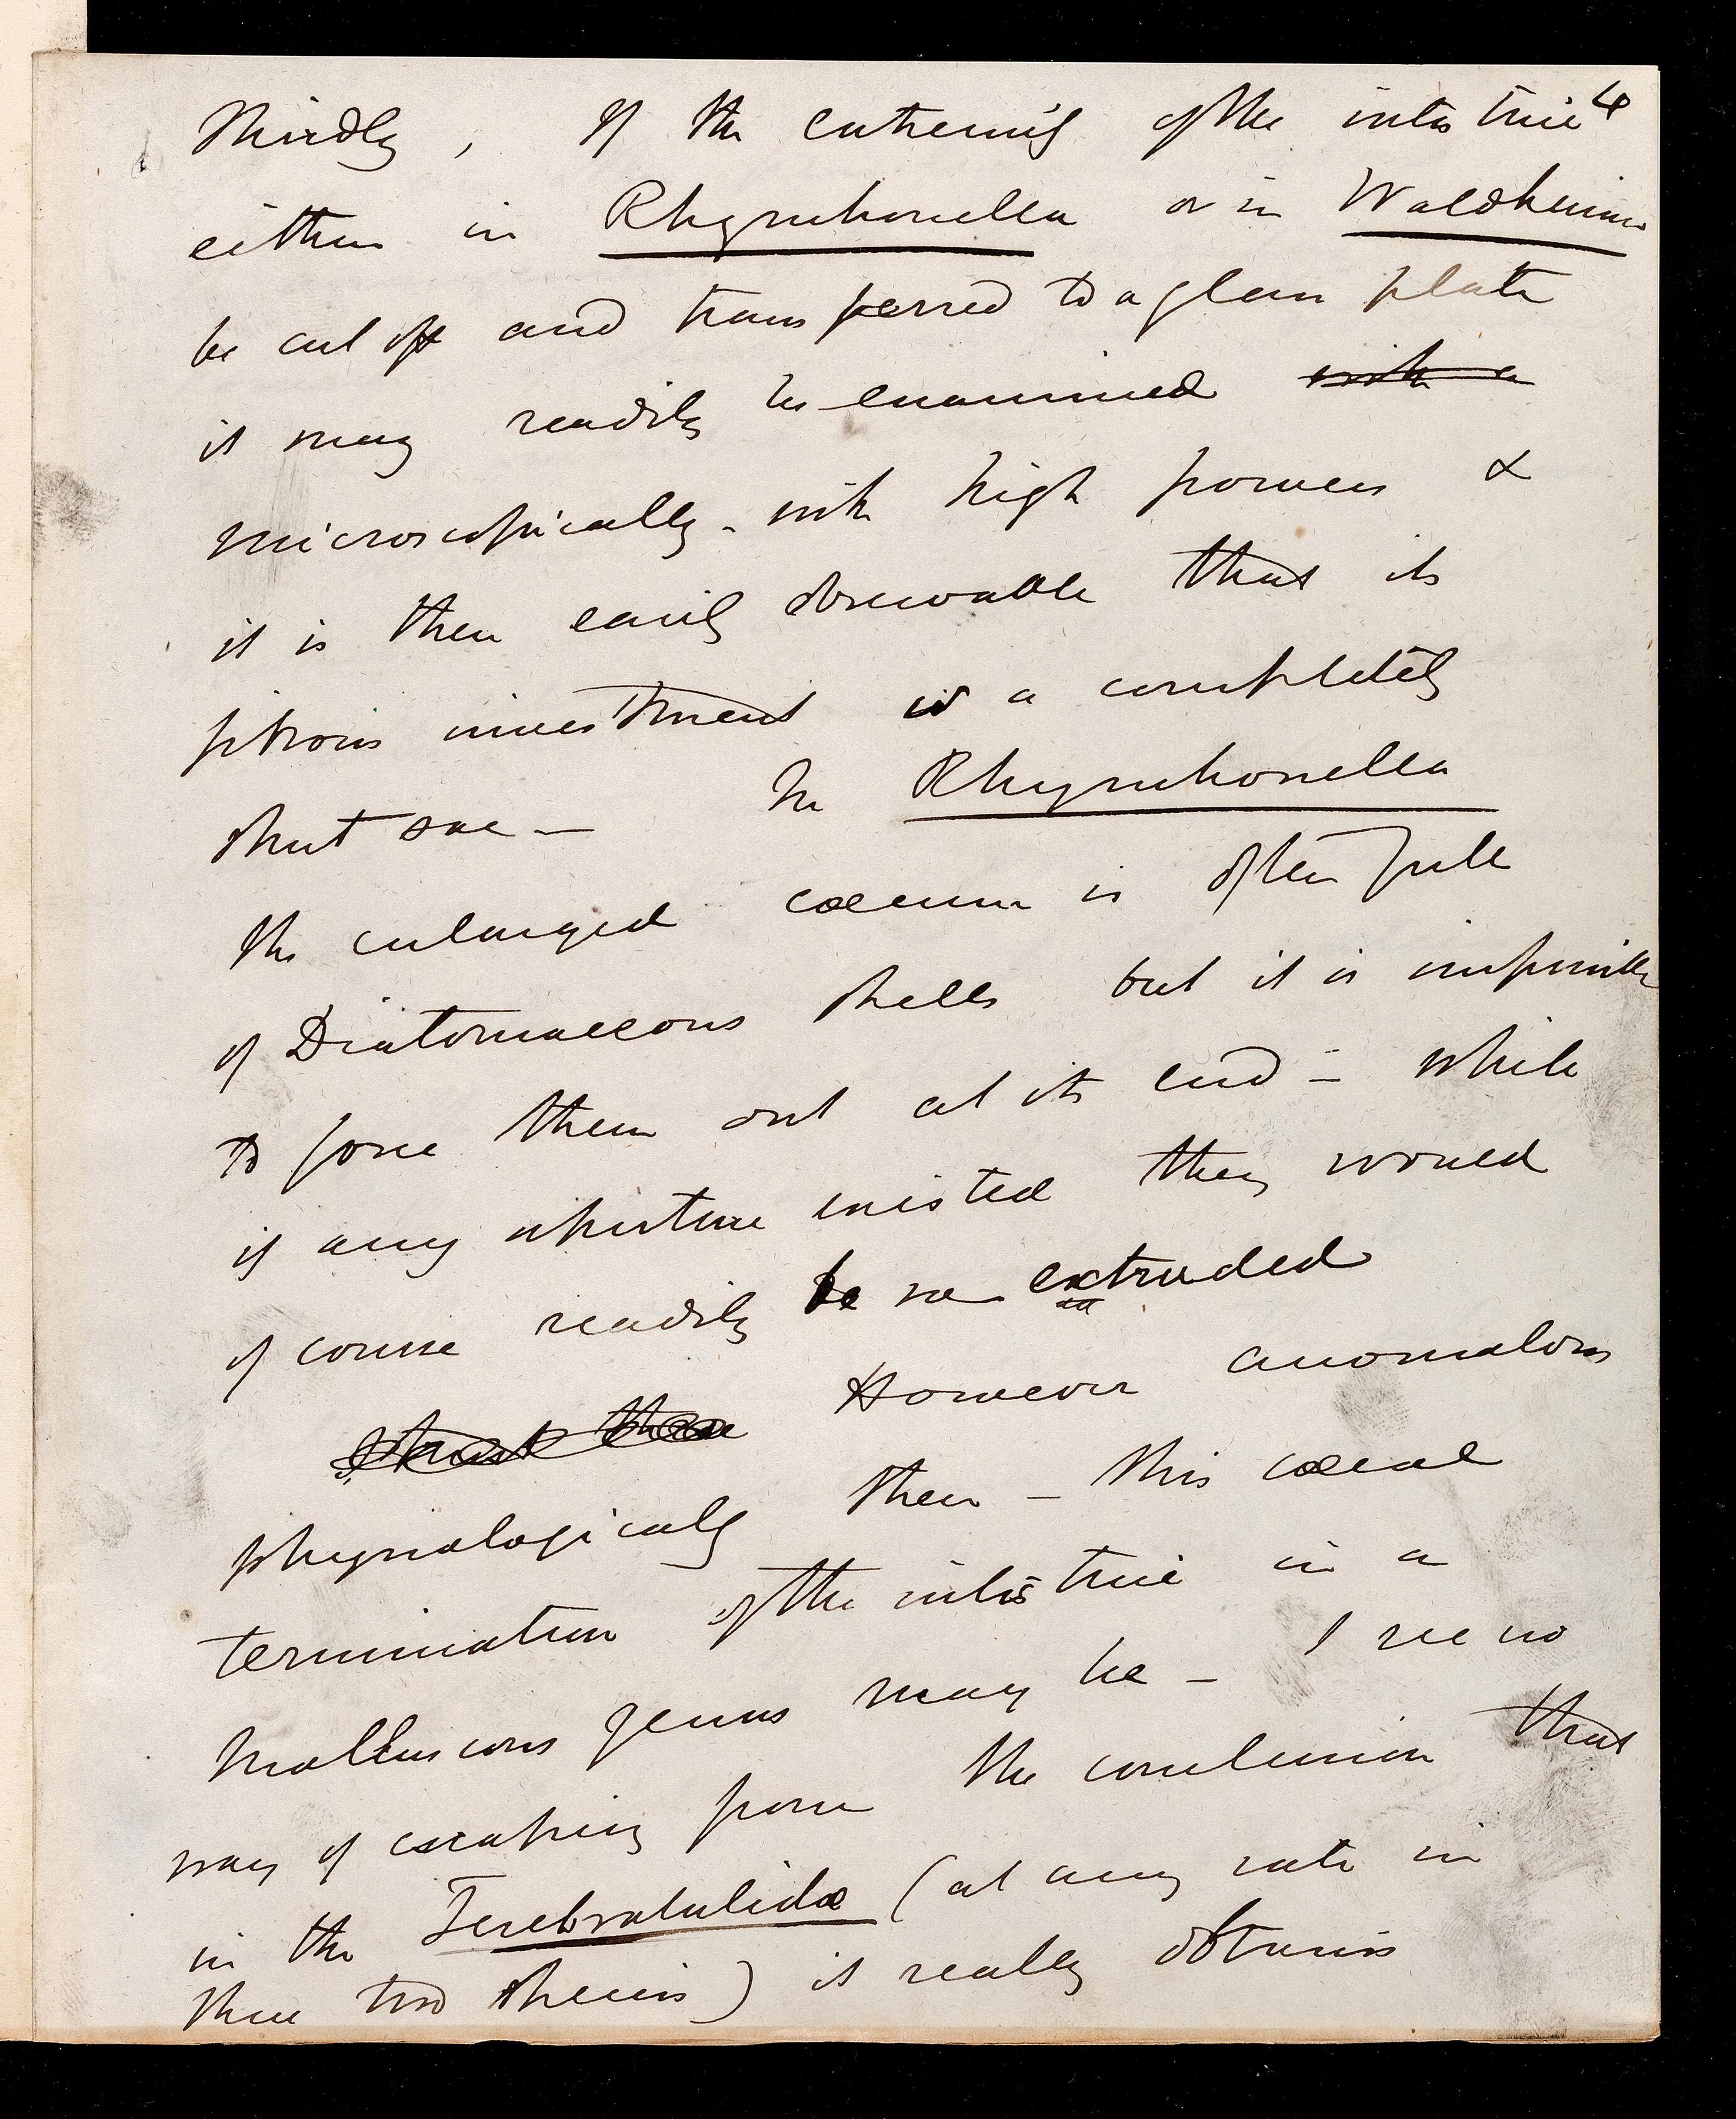 4
Thirdly, If the extremity of the intestine
either in Rhynchonella or in Waldheimia
be cut off and transferred to a glass plate
it may readily be examined with a
microscopically - with high powers &
it is then easily observable that its
fibrous investment is a completely
shut sac — In Rhynchonella
the enlarged cæcum is often full
of Diatomaceous shells but it is impossible
to force them out at its end — while
if any aperture existed they would
of course readily be so extruded
However anomalous
physiologically then — this cæcal
termination of the intestine in a
Molluscous genus may be — I see no
way of escaping from the conclusion that
in the Terebratulidæ (at any rate in
these two species) it really obtains